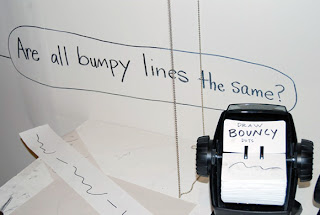 Are all bumpy lines the same?
DRAW
BOUNCY
DOTS